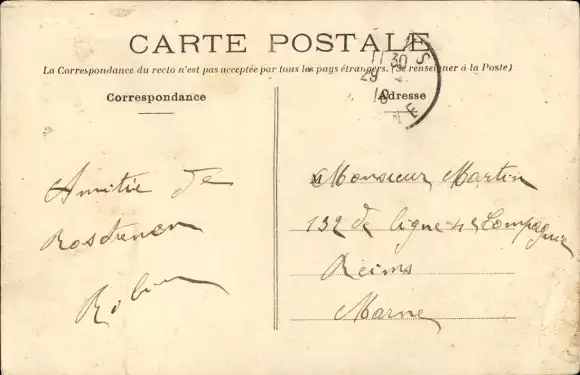 CARTE POSTALE
La Correspondance du recto n'est pas acceptée par tous les pays étrangers. (Se renseigner à la Poste)
Correspondance
Amitié de
Rostrenen
Robin
Adresse
Monsieur Martin
132 de ligne 4e Compagnie
Reims
Marne
11 30
29